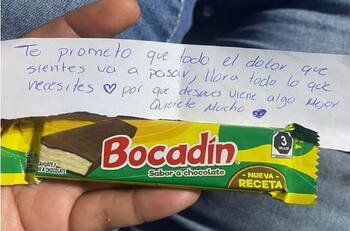 Te prometo que todo el dolor que
sientes va a pasar, llora todo lo que
necesites ♡ por que despues viene algo Mejor
Quiérete Mucho
Bocadín
Sabor a chocolate
NUEVA
RECETA
3
SELLOS